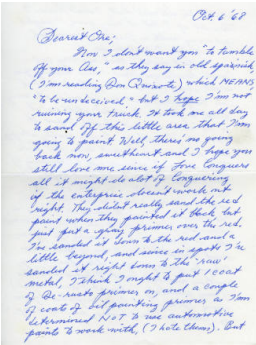 Oct. 6 '68
Dearest One;
Now I don't want you "to tumble
off your Ass," as they say in old spainish
(I'm reading Don Quixote) which MEANS
"to be undeceived," but I hope I'm not
ruining your truck. It took me all day
to sand off this little area that I'm
going to paint. Well, there's no going
back now, sweetheart and I hope you
still love me since if Love Conquers
all it might do alot of conquering
if the enterprise doesn't work out
right. They didn't really sand the red
paint when they painted it black but
just put a gray primer over the red.
I've sanded it down to the red and a
little beyond, and since in spots I've
sanded it right down to the 'raw'
metal, I think I ought to put 1 coat
of De-rusto primer on, and a couple
of coats of oil painting primer as I'm
determined NOT to use automotive
paints to work with, (I hate them). But